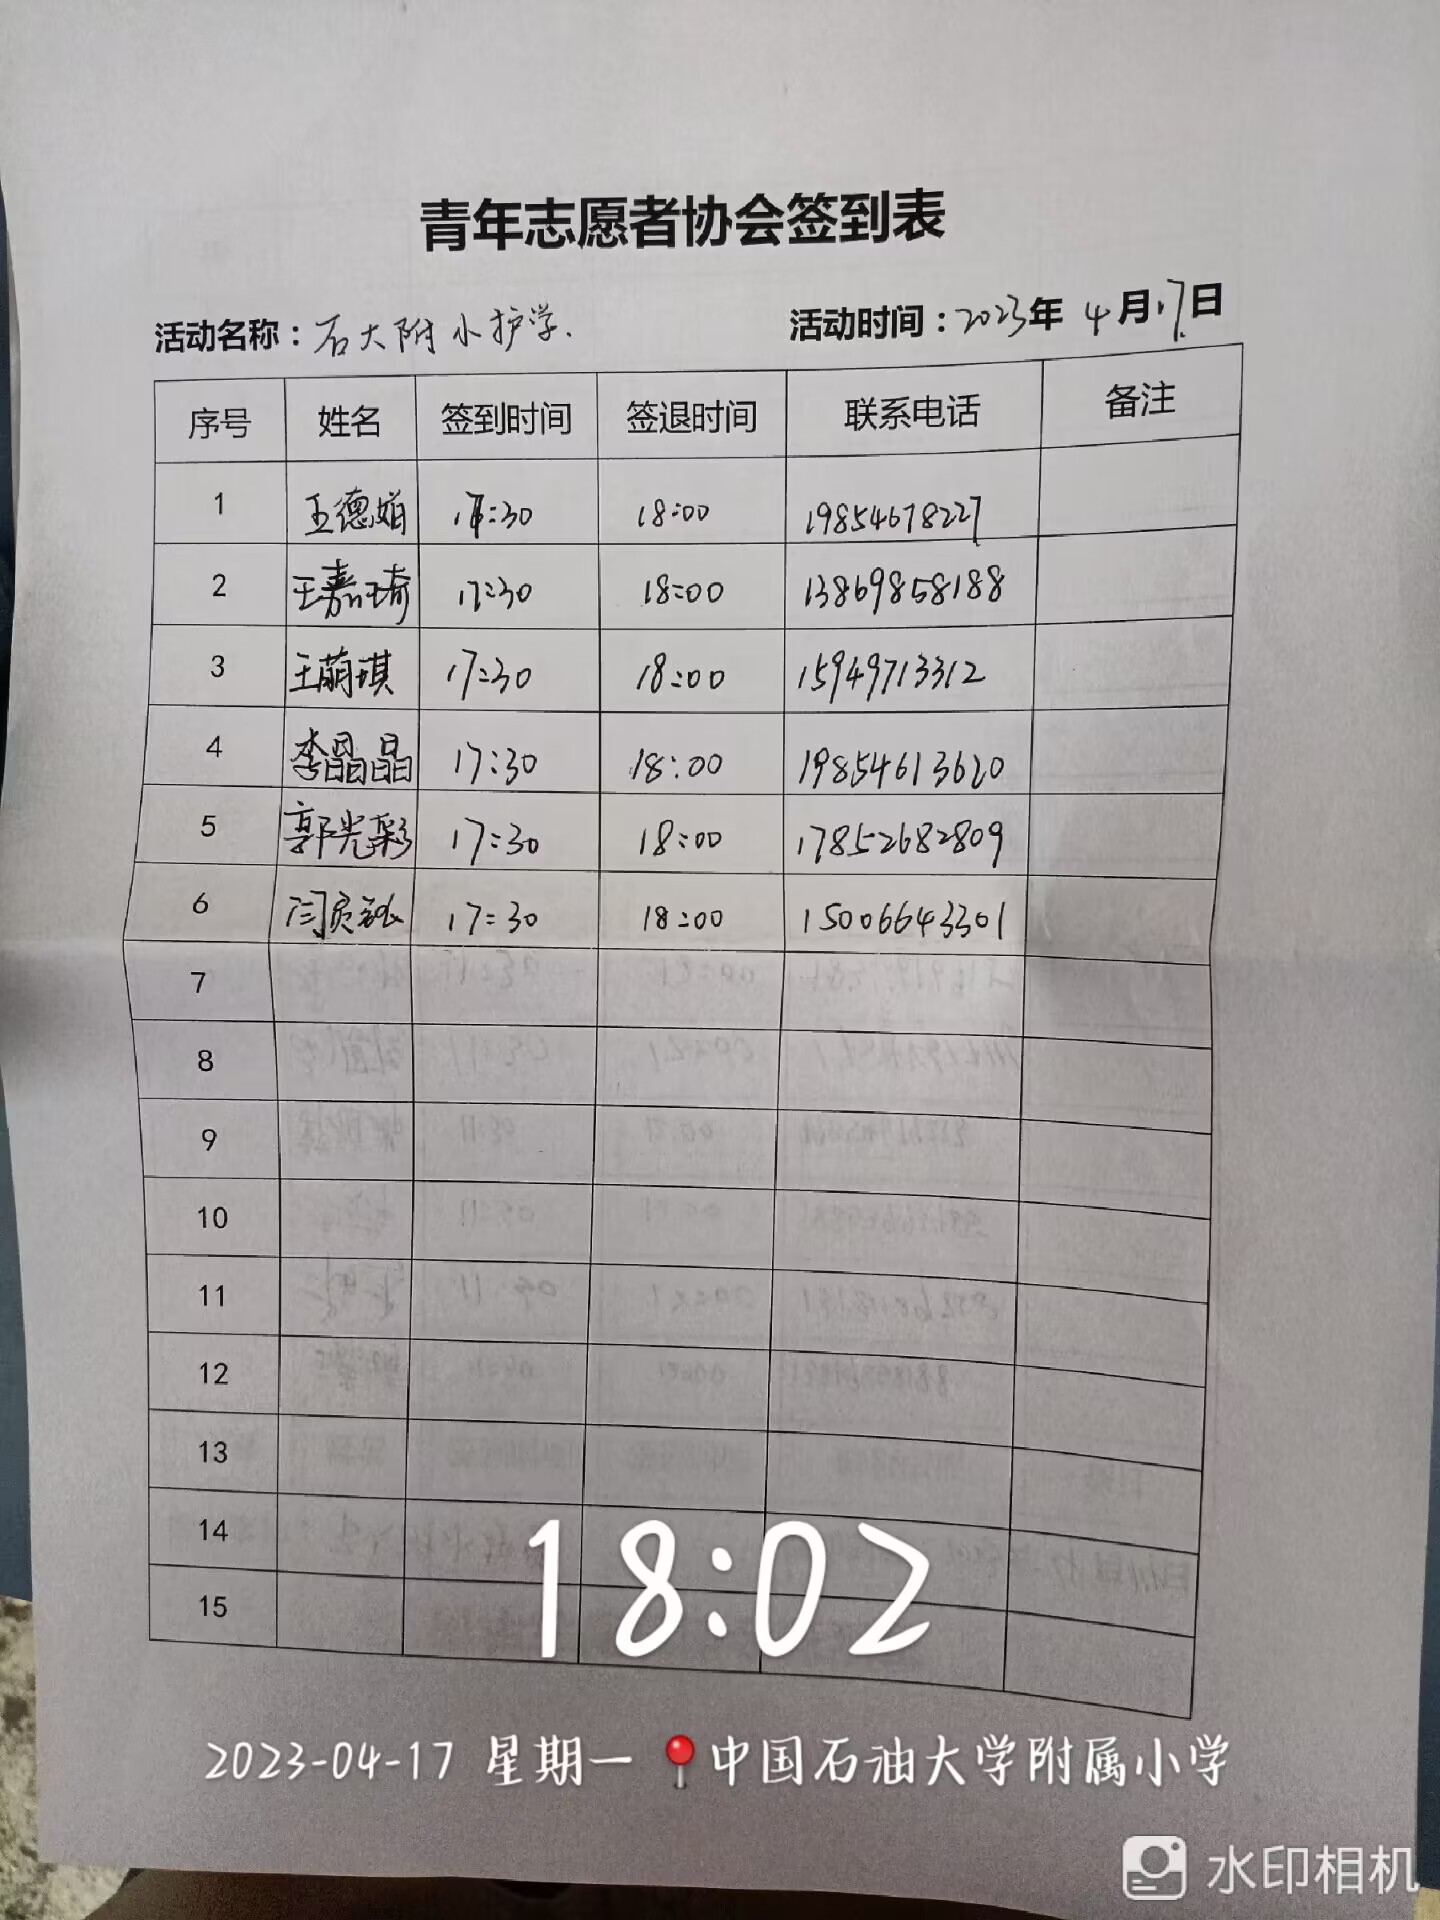 青年志愿者协会签到表
活动名称：石大附小护学. 活动时间：2023年 4月17日
序号 姓名 签到时间 签退时间 联系电话 备注
1 王德娟 17:30 18:00 19854678227
2 王嘉琦 17:30 18:00 13869858188
3 王萌琪 17:30 18:00 15949713312
4 李晶晶 17:30 18:00 19854613620
5 郭光彩 17:30 18:00 17852682809
6 17:30 18:00 15006643301
7
8
9
10
11
12
13
14
15
18:02
2023-04-17 星期一 中国石油大学附属小学
水印相机